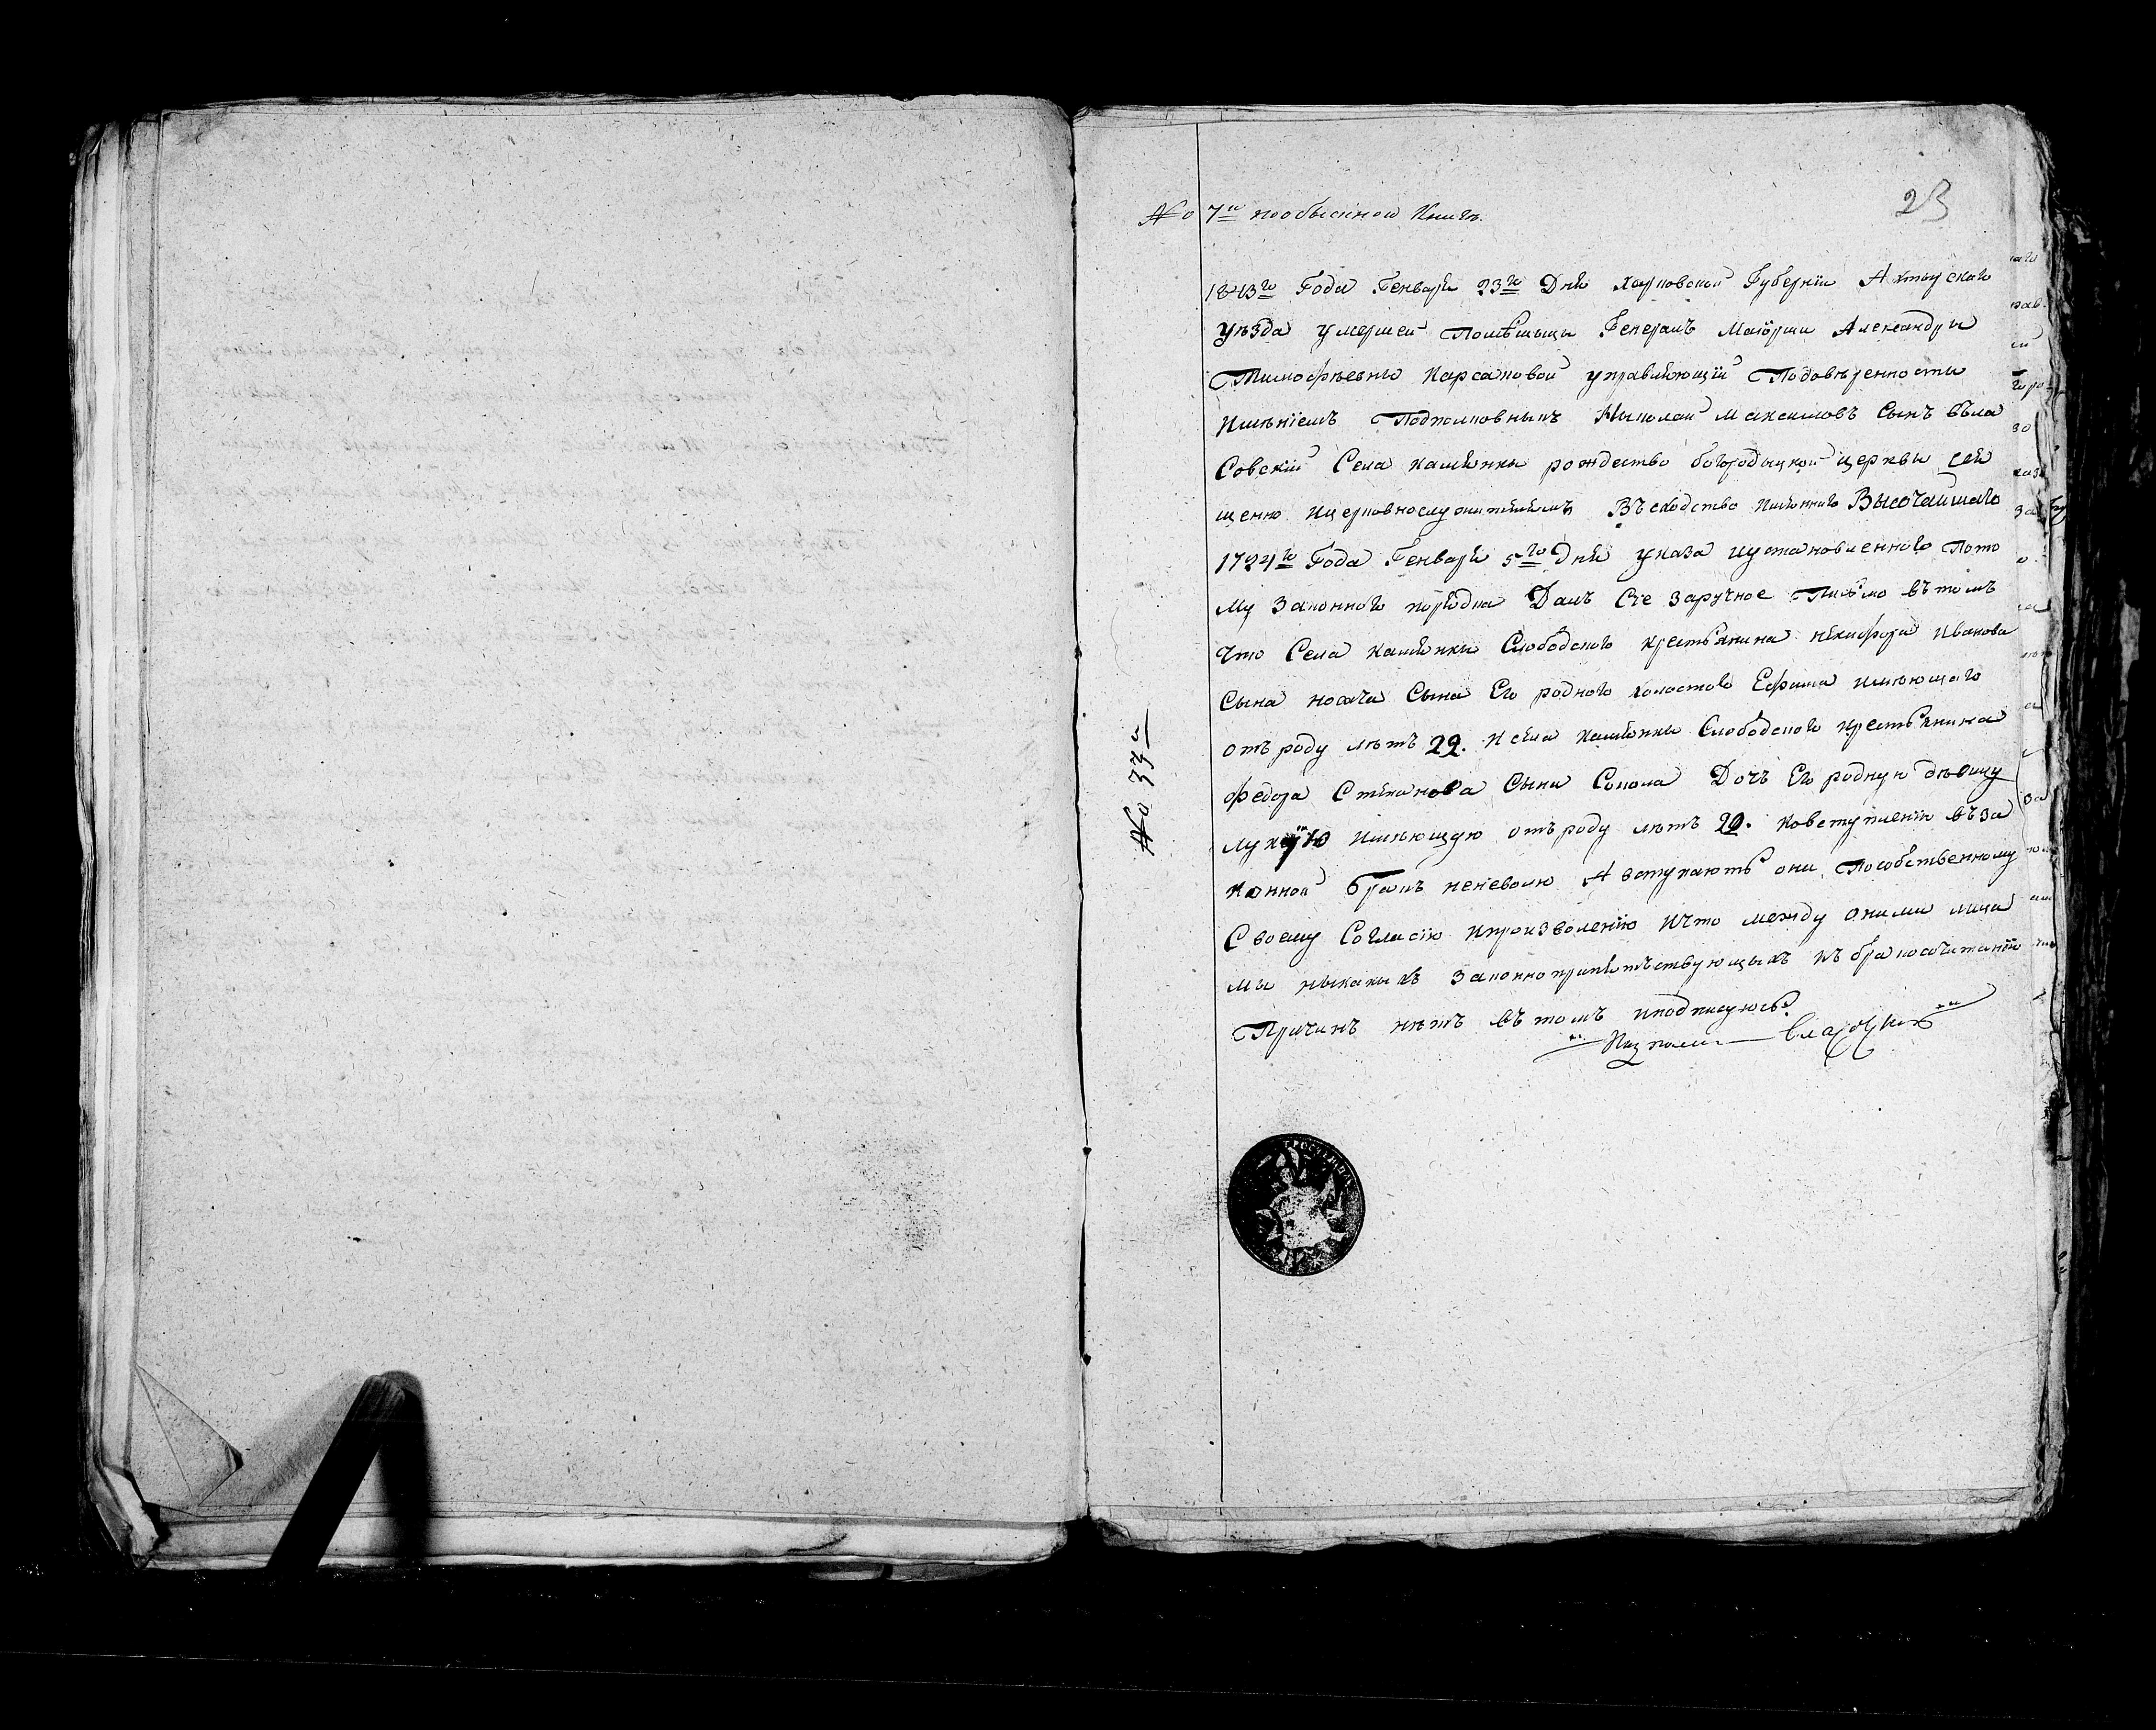 23
№ 7й пообыскной Книгъ.
1843го Года Генваря 23го Дня Харковской Губернiи Ахтырскаго
уѣзда умершей Помѣщыцы Генералъ Маiорши Александры
Тимофѣевны Карсаковой управляющiй Подовѣренности
Имѣнiемъ Подполковныкъ Ныколай Максимовъ Сынъ Вла
Совскiй Села Камянки рождество богородыцкой церквы свя
щенно ицерковнослужителямъ Въсходство Имяннаго Высочайшаго
1724го Года Генваря 5го Дня указа иустановленного Пото
му Законного порядка Далъ Сiе Заручное Письмо вътомъ
Что Села Камянки Слободского крестьянина никифора Иванова
Сына носача Сына Его родного холостого Ефима имѣющаго
отъ роду лѣтъ 22. Исела Камянки Слободского крестьянина
Федора Степанова Сына Сокола Дочъ Его родную дѣвицу
имѣющую отъ роду лѣтъ 20. Ковступленiю въЗа
конной бракъ неневолю А вступаютъ они Пособственному
Своему Согласiю ипроизволенiю ичто между оними лица
мы ныкакыхъ Законно препятствующыхъ къ бракосочитанiю
Причинъ нѣтъ въ томъ иподписуюсь
№ 33й